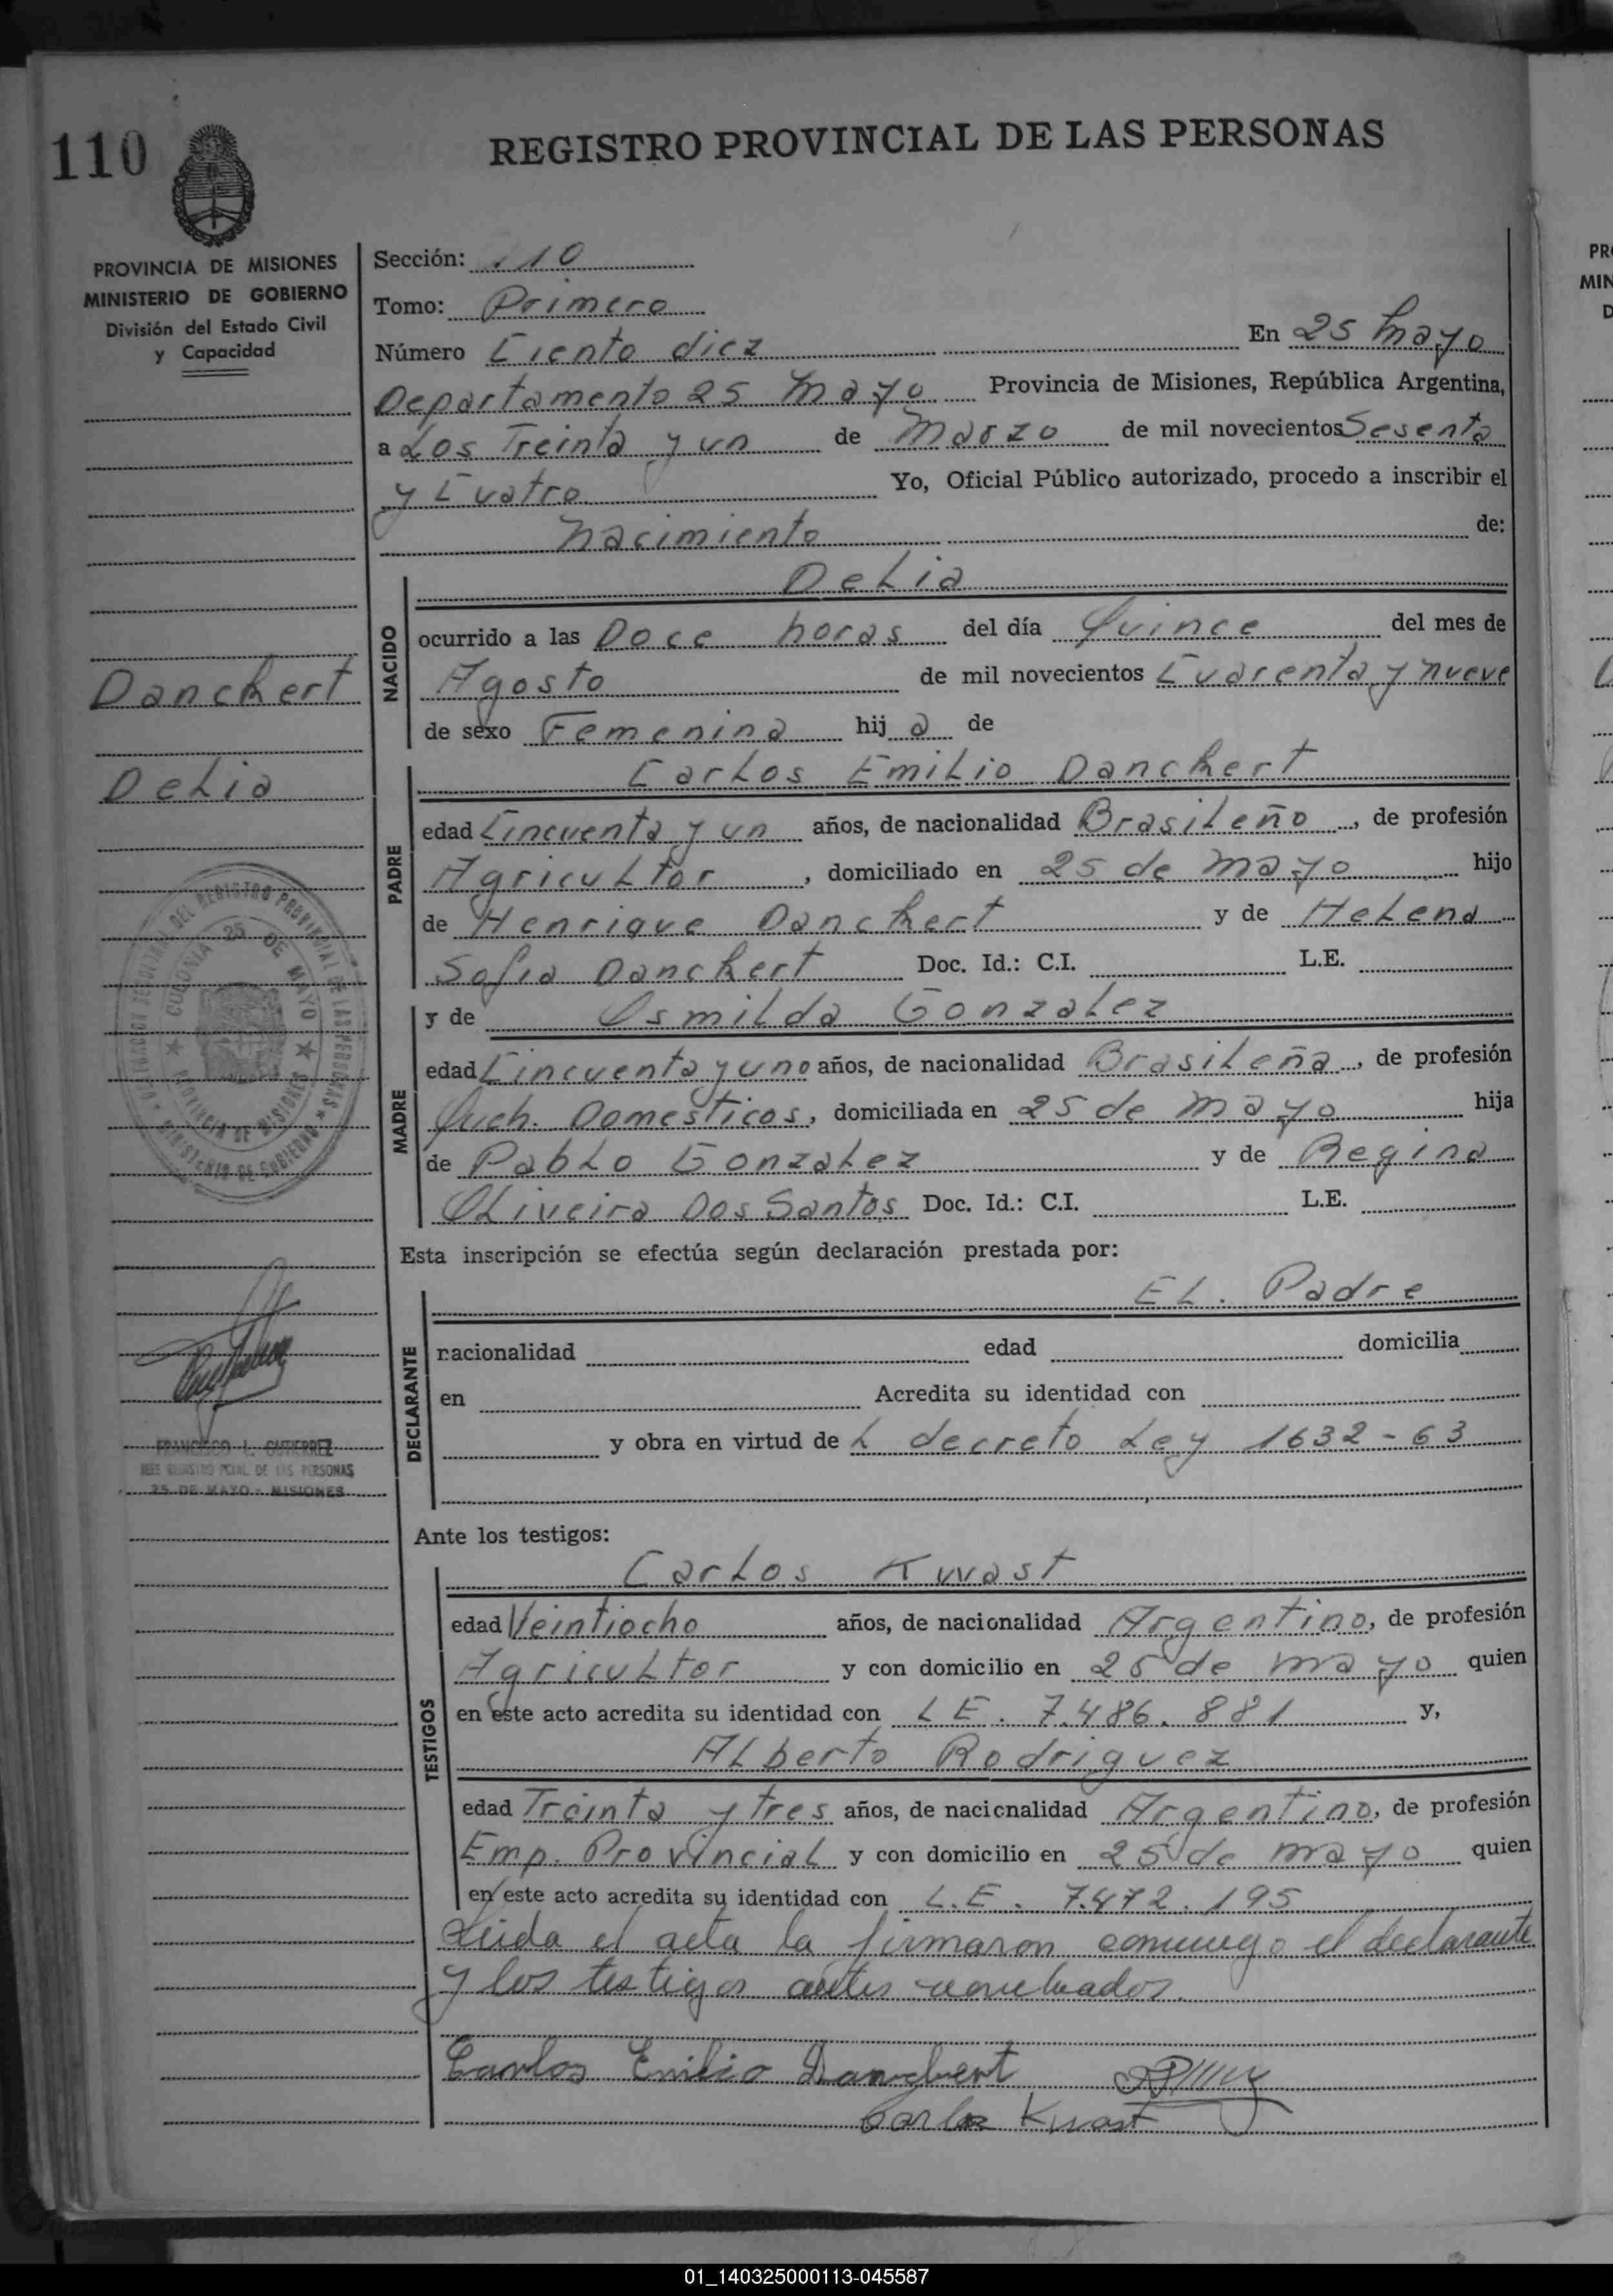 110
REGISTRO PROVINCIAL DE LAS PERSONAS
PROVINCIA DE MISIONES
MINISTERIO DE GOBIERNO
División del Estado Civil
y Capacidad
Danckert
Delia
COLONIA 25 DE MAYO
PROVINCIA DE MISIONES
MINISTERIO DE GOBIERNO
FRANCISCO L. GUTIERREZ
JEFE REGISTRO PCIAL. DE LAS PERSONAS
25 DE MAYO - MISIONES
Sección: 110
Tomo: Primero
Número Ciento diez En 25 Mayo
Departamento 25 Mayo Provincia de Misiones, República Argentina,
a Los Treinta y un de Marzo de mil novecientos Sesenta
y Cuatro Yo, Oficial Público autorizado, procedo a inscribir el
Nacimiento de:
NACIDO
Delia
ocurrido a las Doce horas del día Quince del mes de
Agosto de mil novecientos Cuarenta y nueve
de sexo Femenina hij a de
PADRE
Carlos Emilio Danckert
edad Cincuenta y un años, de nacionalidad Brasileño, de profesión
Agricultor, domiciliado en 25 de Mayo hijo
de Henrique Danckert y de Helena
Sofia Danckert Doc. Id.: C.I. L.E.
MADRE
y de Osmilda Gonzalez
edad Cincuenta y uno años, de nacionalidad Brasileña, de profesión
Queh. Domesticos, domiciliada en 25 de Mayo hija
de Pablo Gonzalez y de Regina
Oliveira Dos Santos Doc. Id.: C.I. L.E.
Esta inscripción se efectúa según declaración prestada por:
DECLARANTE
EL. Padre
nacionalidad edad domicilia
en Acredita su identidad con
y obra en virtud de L decreto Ley 1632-63
Ante los testigos:
TESTIGOS
Carlos Kwast
edad Veintiocho años, de nacionalidad Argentino, de profesión
Agricultor y con domicilio en 25 de Mayo quien
en este acto acredita su identidad con L E. 7.486.881 y,
Alberto Rodriguez
edad Treinta y tres años, de nacionalidad Argentino, de profesión
Emp. Provincial y con domicilio en 25 de Mayo quien
en este acto acredita su identidad con L.E. 7.472.195
Leida el acta la firmaron conmigo el declarante
y los testigos antes
Carlos Emilio Danckert
Carlos Kwast
01_140325000113-045587